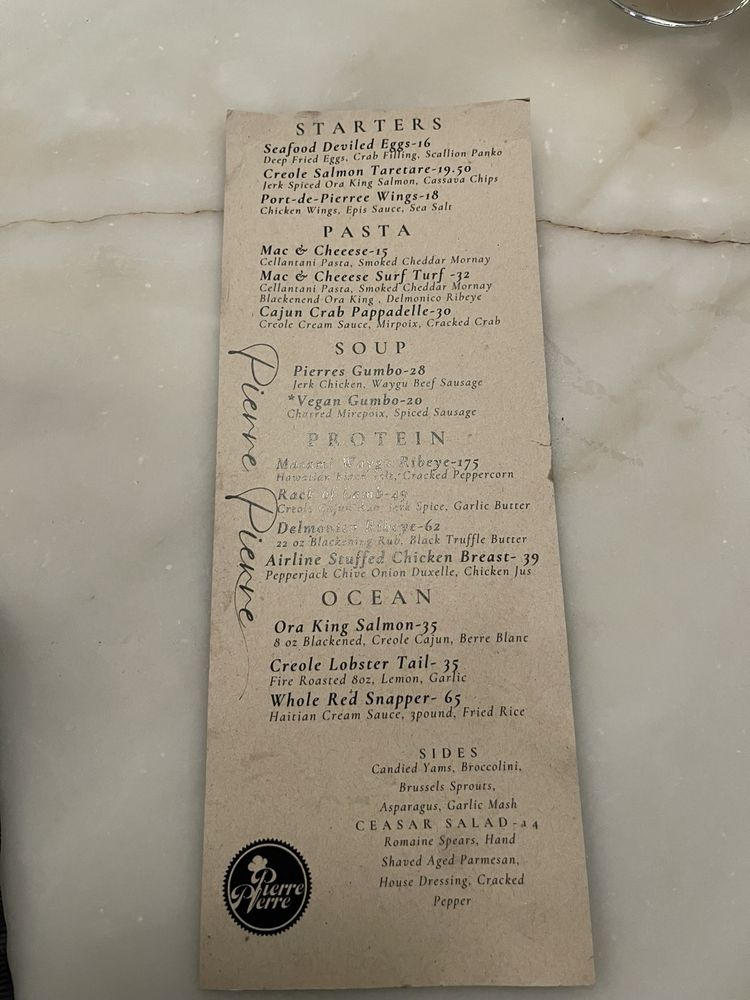 STARTERS
Seafood Deviled Eggs-16
Deep Fried Eggs, Crab Filling, Scallion Panko
Creole Salmon Taretare-19.50
Jerk Spiced Ora King Salmon, Cassava Chips
Port-de-Pierree Wings-18
Chicken Wings, Epis Sauce, Sea Salt
PASTA
Mac & Cheeese-15
Cellantani Pasta, Smoked Cheddar Mornay
Mac & Cheeese Surf Turf -32
Cellantani Pasta, Smoked Cheddar Mornay
Blackenend Ora King , Delmonico Ribeye
Cajun Crab Pappadelle-30
Creole Cream Sauce, Mirpoix, Cracked Crab
SOUP
Pierres Gumbo-28
Jerk Chicken, Waygu Beef Sausage
*Vegan Gumbo-20
Charred Mirepoix, Spiced Sausage
PROTEIN
Ribeye-175
Hawaiian Black Cracked Peppercorn
Rack of Lamb-49
Creole Cajun Rub, Jerk Spice, Garlic Butter
Delmonico Ribeye-62
22 oz Blackening Rub, Black Truffle Butter
Airline Stuffed Chicken Breast- 39
Pepperjack Chive Onion Duxelle, Chicken Jus
OCEAN
Ora King Salmon-35
8 oz Blackened, Creole Cajun, Berre Blanc
Creole Lobster Tail- 35
Fire Roasted 8oz, Lemon, Garlic
Whole Red Snapper- 65
Haitian Cream Sauce, 3pound, Fried Rice
Pierre Pierre
SIDES
Candied Yams, Broccolini,
Brussels Sprouts,
Asparagus, Garlic Mash
CEASAR SALAD-14
Romaine Spears, Hand
Shaved Aged Parmesan,
House Dressing, Cracked
Pepper
Pierre
Pierre